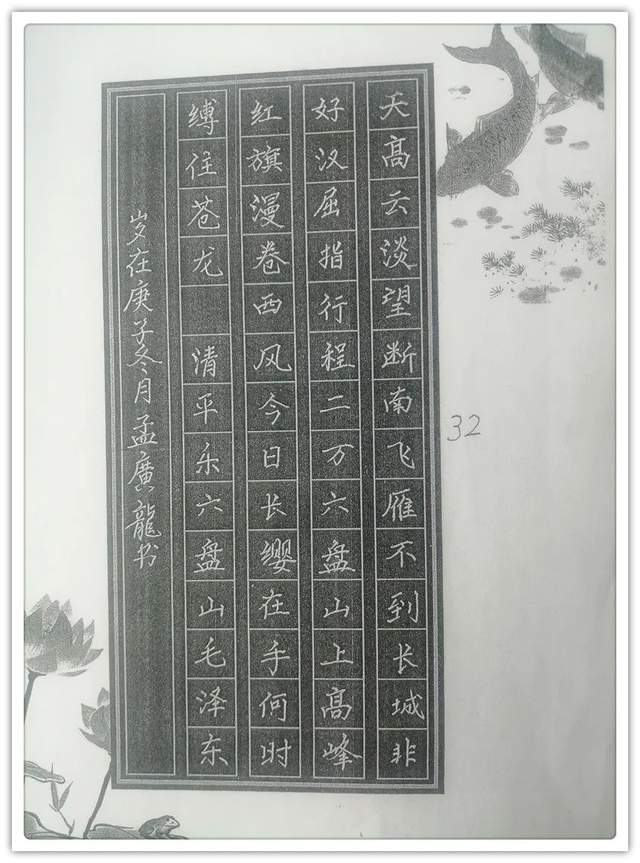 天高云淡望断南飞雁不到长城非
好汉屈指行程二万六盘山上高峰
红旗漫卷西风今日长缨在手何时
缚住苍龙 清平乐六盘山毛泽东
岁在庚子冬月孟廣龍书
32